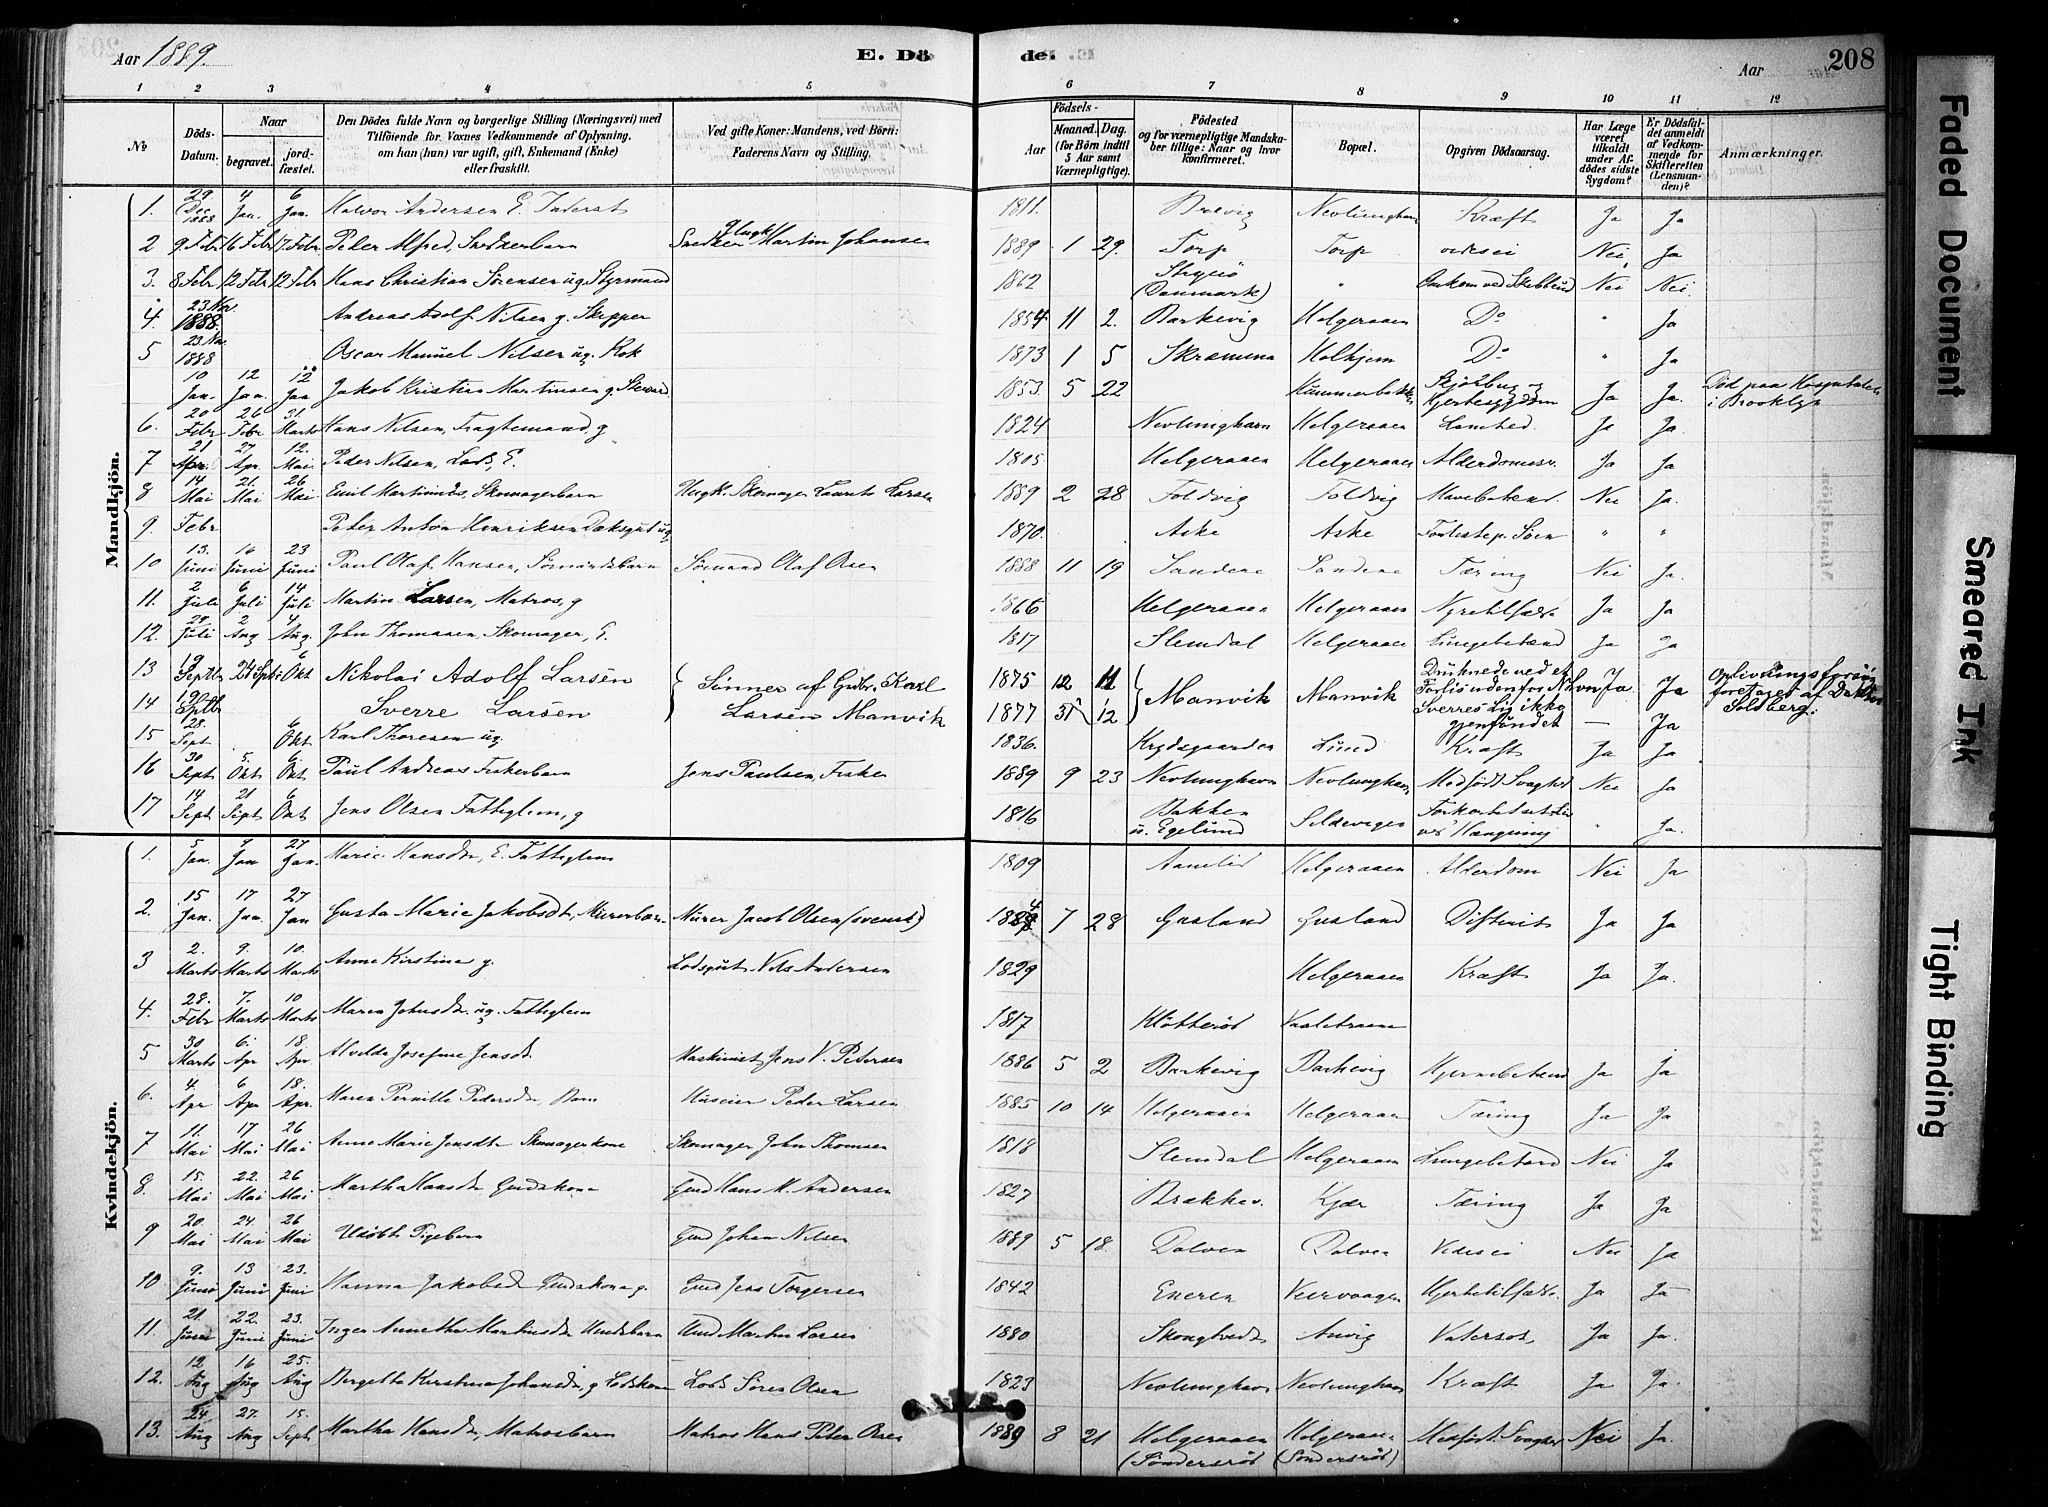 Aar 1889. E. Döde. Aar 208
1 2 3 4 5 6 6 7 8 9 10 11 12
No Döds-Datum. Naar begravet. jordfæstet. Den Dödes fulde Navn og borgerlige Stilling (Næringsvei) med Tilföiende for Voxnes Vedkommende af Oplysning, om han (hun) var ugift, gift, Enkemand (Enke) eller fraskilt. Ved gifte Koner: Mandens, ved Börn: Faderens Navn og Stilling. Födsels- Aar Maaned. Dag. (for Börn indtil 5 Aar samt Værnepligtige). Födested og for værnepligtige Mandskaber tillige: Naar og hvor konfirmeret. Bopæl. Opgiven Dödsaarsag. Har Læge været tilkaldt under Afdödes sidste Sygdom? Er Dödsfaldet anmeldt af Vedkommende for Skifteretten (Lensmanden)? Anmærkninger.
Mandkjön.
1. 29 Dec 1888 4 Jan. 6 Jan. Halvor Andersen E. Inderst 1811. Brevig Nevlunghavn Kræft Ja Ja
2 9 Febr 16 Febr 17 Febr Peter Alfred, Snedkerbarn Snedker Martin Johansen 1889 1 29. Torp Torp Nei Ja
3. 8 Febr 12 Febr 12 Febr Hans Christian Sörensen ug. Styrmand 1862 (Danmark) " Omkom ved Skibbrud Nei Nei.
4. 23 Nov. 1888. Andreas Adolf Nilsen g. Skipper 1854 11 2. Barkevig Helgeraaen Do " Ja
5 23 Nov 1888 Oscar Manuel Nilsen ug. Kok 1873 1 5 Skramma Holhjem Do " Ja
10 Jan. 12 Jan. 12 Jan Jakob Kristian Martinsen g. 1853 5 22 Skjörbug og Hjertesygdom Ja Ja. Död paa Hospitalet i Brooklyn
6. 20 Febr 26 Febr 31. Marts Hans Nilsen, Fragtemand, g 1824 Nevlunghavn Helgeraaen Lamhed. Ja Ja.
7 21 Apr. 27 Apr. 12. Mai Peder Nilsen, Lods, E. 1805 Helgeraaen Helgeraaen Alderdomssv. Ja Ja
8 14 Mai 21. Mai 26 Mai Emil Martinius, Skomagerbarn Ungk. Skomager Laurits Larsen 1889 2 28 Foldvig Foldvig Mavebetænd. Nei Ja.
9. Febr Peter Anton Henriksen Dæksgut ug 1870. Aske Aske Forlist p. Söen " "
10 13. Juni 16 Juni 23 Juni Paul Olaf Hansen, Sömandsbarn Sömand Olaf Olsen 1888 11 19 Sandene Sandene Tæring Nei Ja.
11. 2 Juli 6 Juli 14 Juli Martin Larsen, Matros, g 1866 Helgeraaen Helgeraaen Nyretilfælde Ja Ja
12. 29 Juli 2 Aug 4 Aug. John Thomasen, Skomager, E. 1817 Slemdal Helgeraaen Lungebetænd Ja Ja
13 19 Septbr 24 Sept. 6 Okt Nikolai Adolf Larsen } Sönner af Gubr. Karl 1875 12 11 } Manvik Manvik Druknede ved et Forlis udenfor Ja Ja Oplivningsforsög foretaget af Doktor
14 19 Sptbr Sverre Larsen Larsen Manvik 1877 5 12 Sverres Lig ikke gjenfundet — Ja Solberg.
15 28. Sept 6 Okt Karl Thoresen ug. 1836. Krydsgaarden Lund Kræft Ja Ja
16 30 Sept 5. Okt 6 Okt. Paul Andreas Fiskerbarn Jens Paulsen, Fisker 1889 9 23 Nevlunghavn Nevlunghavn Medfödt Svaghed Nei Ja
17 14 Sept 21 Sept 6 Okt Jens Olsen Fattiglem, g 1816 Bakken u. Egelund Seldeveger Forkortet sit Liv ved Hængning " Ja.
Kvindekjön.
1. 5 Jan. 9 Jan 27 Jan. Marie Hansdtr, E. Fattiglem 1809 Aamlid Helgeraaen Alderdom Nei Ja
2. 15 Jan. 17 Jan. 27 Jan Gusta Marie Jakobsdt., Murerbarn Murer Jacob Olsen (svensk) 1884 7 28 Gusland Gusland Difterit Ja Ja
3 2. Marts 9. Marts 10. Marts Anne Kirstine g. Lodsgut Nils Andersen 1829 Helgeraaen Kræft Ja Ja.
4. 28. Febr 7. Marts 10 Marts Maren Johnsdtr. ug. Fattiglem 1817 Klötteröd Vaaletraae
5 30 Marts 6. Apr 18. Apr. Alvilde Josefine Jensdt. Maskinist Jens V. Petersen 1886 5 2 Barkevig Barkevig Hjernebetænd Ja Ja
6. 4. Apr 6 Apr 18. Apr. Maren Pernille Pedersdtr, Barn Huseier Peder Larsen 1885 10 14 Helgeraaen Helgeraaen Tæring Ja Ja
7 11. Mai 17 Mai 26 Mai Anne Marie Jensdtr Skomagerkone Skomager John Thomsen 1818 Slemdal Helgeraaen Lungebetænd Nei Ja
8. 15. Mai 22. Mai 26 Mai Martha Hansdtr Gmdskone Gmd Hans M. Andersen 1827 Brække. Kjær Tæring Ja Ja
9 20. Mai 24. Mai 26 Mai Udöbt Pigebarn Gmd Johan Nilsen 1889 5 18. Dolven Dolven Nei Ja
10 9. Juni 13 Juni 23. Juni Hanna Jakobsd Gmdskone g. Gmd Jens Torgersen 1842 Eneren Veervaagen Hjertetilfælde Ja Ja
11. 21. Juni 22. Juni 23. Juni Inger Annethe Martinsdtr Gmdsbarn Gmd Martin Larsen 1880 Skougtvedt Anvig Vatersot, Ja Ja.
12. 12 Aug 16 Aug 25. Aug Bergitta Kirstina Johansdtr, g Lodskone Lods Sören Olsen 1823 Nevlunghavn Nevlunghavn Kræft Ja Ja.
13. 24. Aug 27. Aug 15. Sept. Martha Hansdtr, Matrosbarn Matros Hans Peter Olsen 1889 8 21 Helgeraaen (Söndersröd Helgeraaen (Söndersröd) Medfödt. Svaghed Nei Ja.
Faded Document
Smeared Ink
Tight Binding